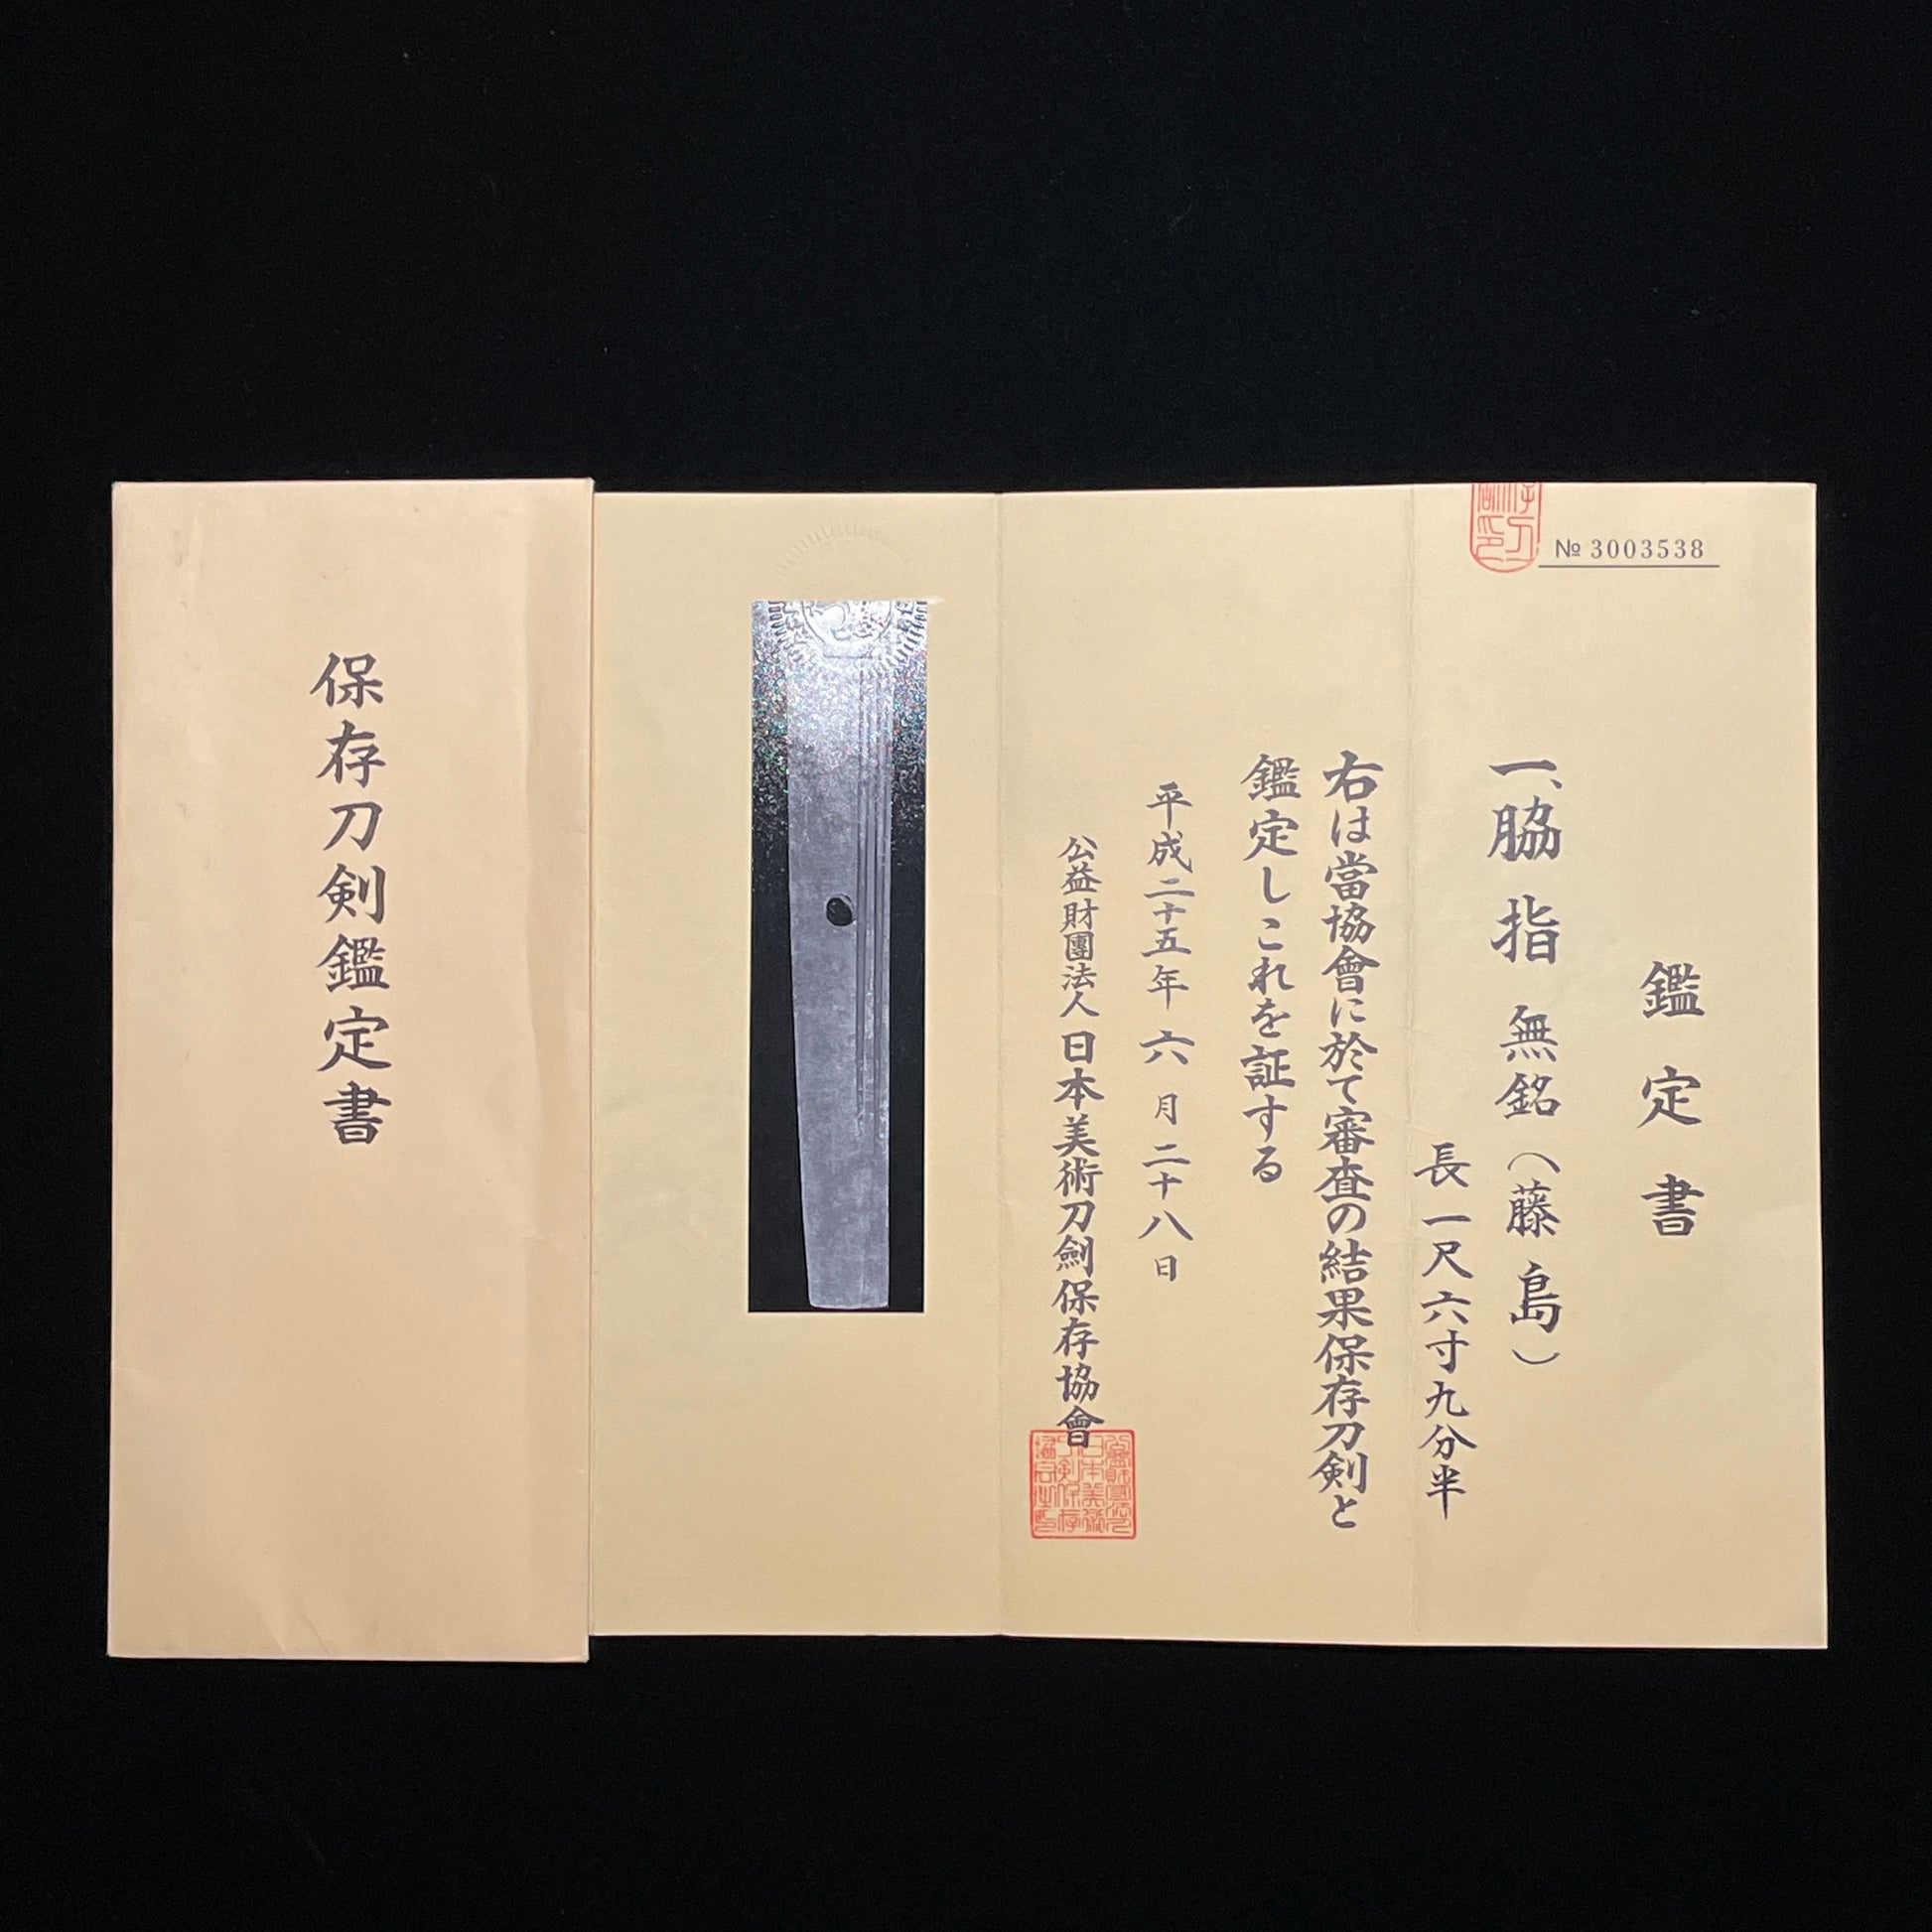 № 3003538
鑑定書
一、脇指 無銘（藤島）
長一尺六寸九分半
右は當協會に於て審査の結果保存刀剣と
鑑定しこれを証する
平成二十五年六月二十八日
公益財團法人日本美術刀劍保存協會
保存刀剣鑑定書